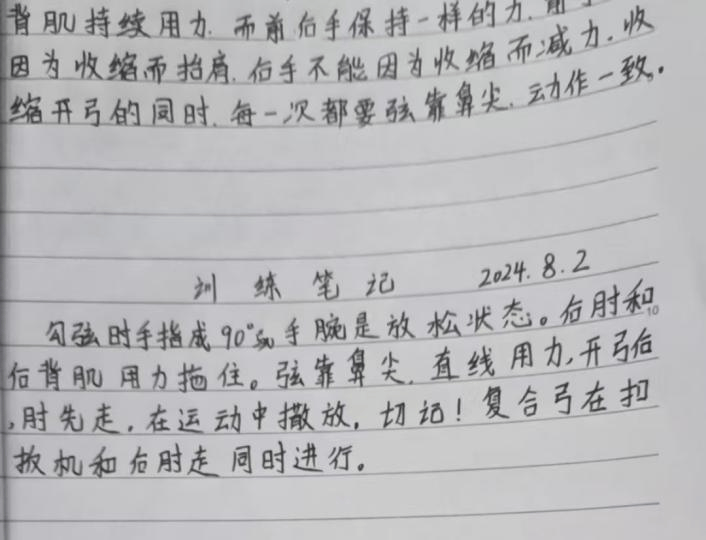 背肌持续用力.而前后手保持一样的力.
因为收缩而抬肩.后手不能因为收缩而减力.收
缩开弓的同时.每一次都要弦靠鼻尖.动作一致。
训练笔记 2024.8.2
勾弦时手指成90°、手腕是放松状态。后肘和
后背肌用力拖住。弦靠鼻尖.直线用力,开弓后
,肘先走.在运动中撒放.切记!复合弓在扣
扳机和后肘走同时进行。
10